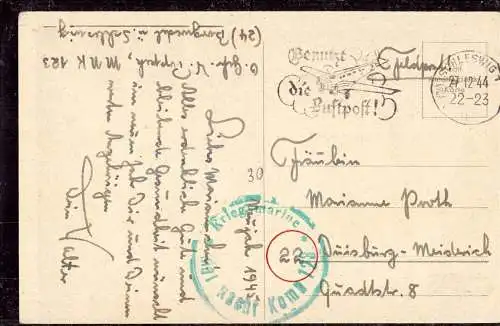 (24) Burgwedel ü. Schleswig
O. Gfr. V. Poppek, M M K 123
Neujahr 1945
Liebe Marianne!
Alles erdenklich Gute und
bleibende Gesundheit wünscht
im neuen Jahr Dir und Deinen
werten Angehörigen
Dein Valter
30
Benutzt
die
Luftpost!
Feldpost
SCHLESWIG
27.12.44
22-23
Fräulein
Marianne Proth
22 Duisburg-Meiderich
Quadtstr. 8
Kriegsmarine
Komp. 123